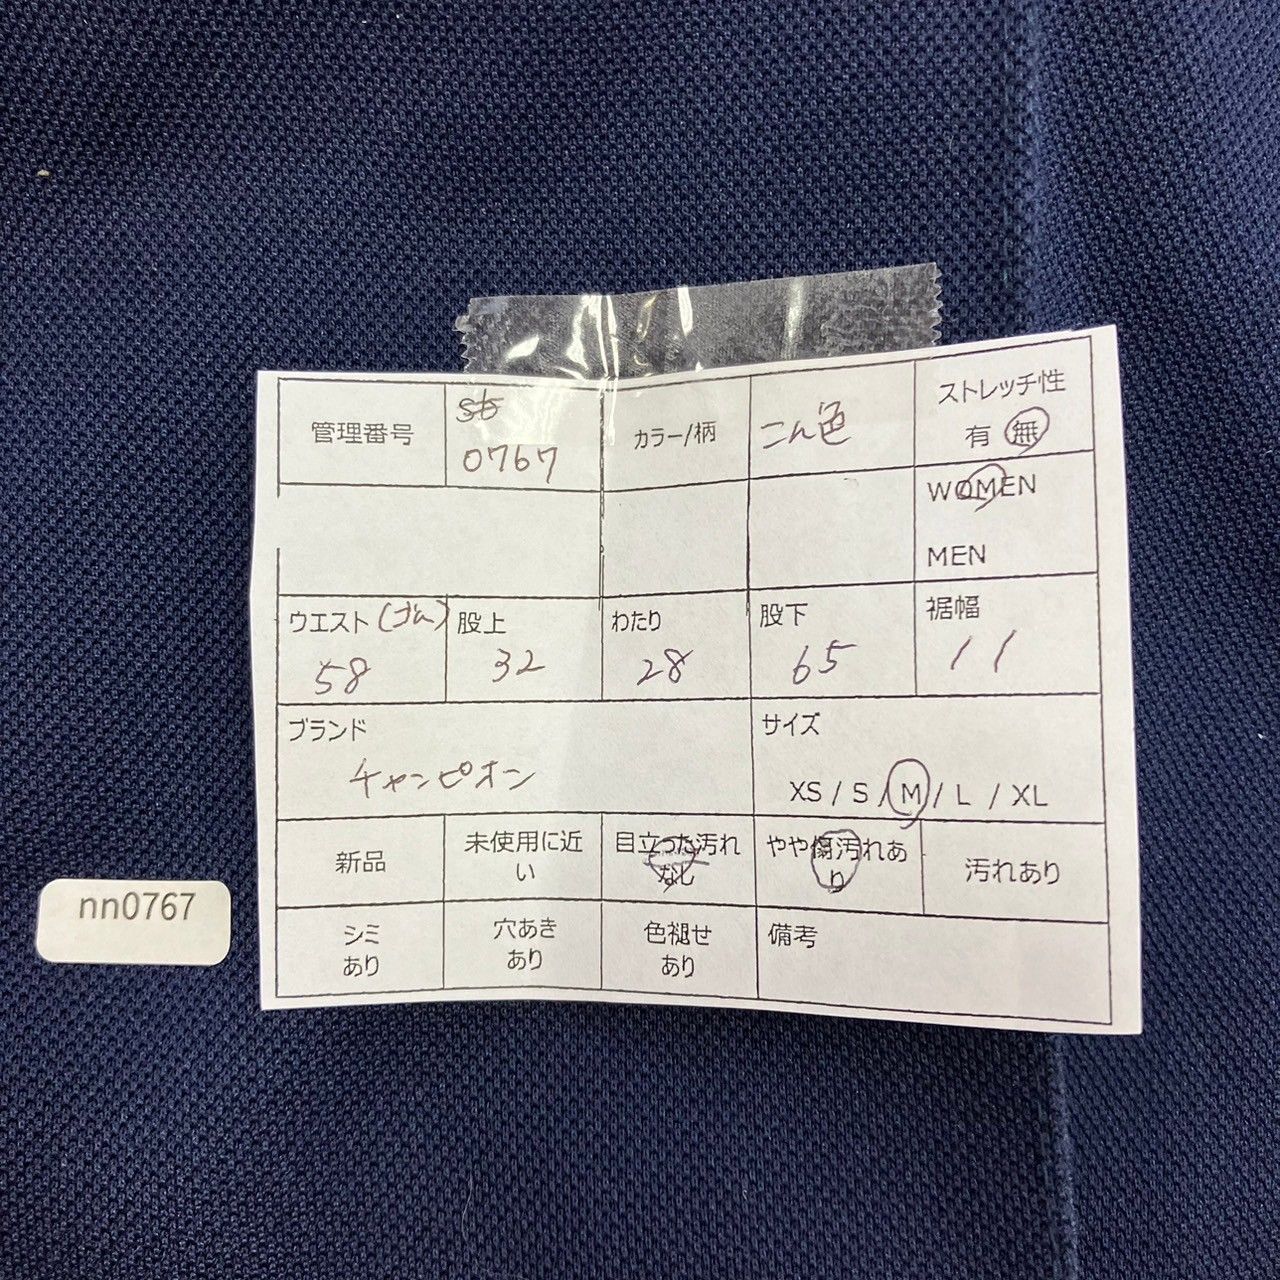 管理番号
0767
カラー/柄
こん色
ストレッチ性
有 無
WOMEN
MEN
ウエスト(ゴム)
58
股上
32
わたり
28
股下
65
裾幅
11
ブランド
チャンピオン
サイズ
XS / S / M / L / XL
新品
未使用に近
い
目立った汚れ
なし
やや傷汚れあ
り
汚れあり
シミ
あり
穴あき
あり
色褪せ
あり
備考
nn0767